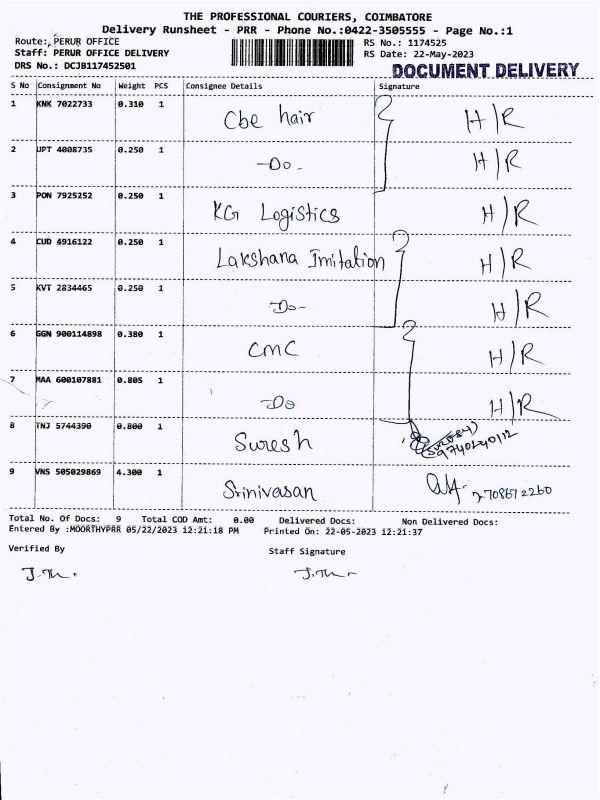 THE PROFESSIONAL COURIERS, COIMBATORE
Delivery Runsheet - PRR - Phone No.:0422-3505555 - Page No.:1
Route: PERUR OFFICE
RS No.: 1174525
Staff: PERUR OFFICE DELIVERY
RS Date: 22-May-2023
DRS No.: DCJB117452501
DOCUMENT DELIVERY
S No Consignment No Weight PCS Consignee Details Signature
1 KNK 7022733 0.310 1 Cbe hair H/R
2 UPT 4008735 0.250 1 -Do- H/R
3 PON 7925252 0.250 1 KG Logistics H/R
4 CUD 4916122 0.250 1 Lakshana Imitation H/R
5 KVT 2834465 0.250 1 -Do- H/R
6 GGN 900114898 0.380 1 CMC H/R
7 MAA 600107881 0.805 1 -Do H/R
8 TNJ 5744390 0.800 1 Suresh
9 VNS 505029869 4.300 1 Srinivasan
Total No. Of Docs: 9 Total COD Amt: 0.00 Delivered Docs: Non Delivered Docs:
Entered By :MOORTHYPRR 05/22/2023 12:21:18 PM Printed On: 22-05-2023 12:21:37
Verified By Staff Signature